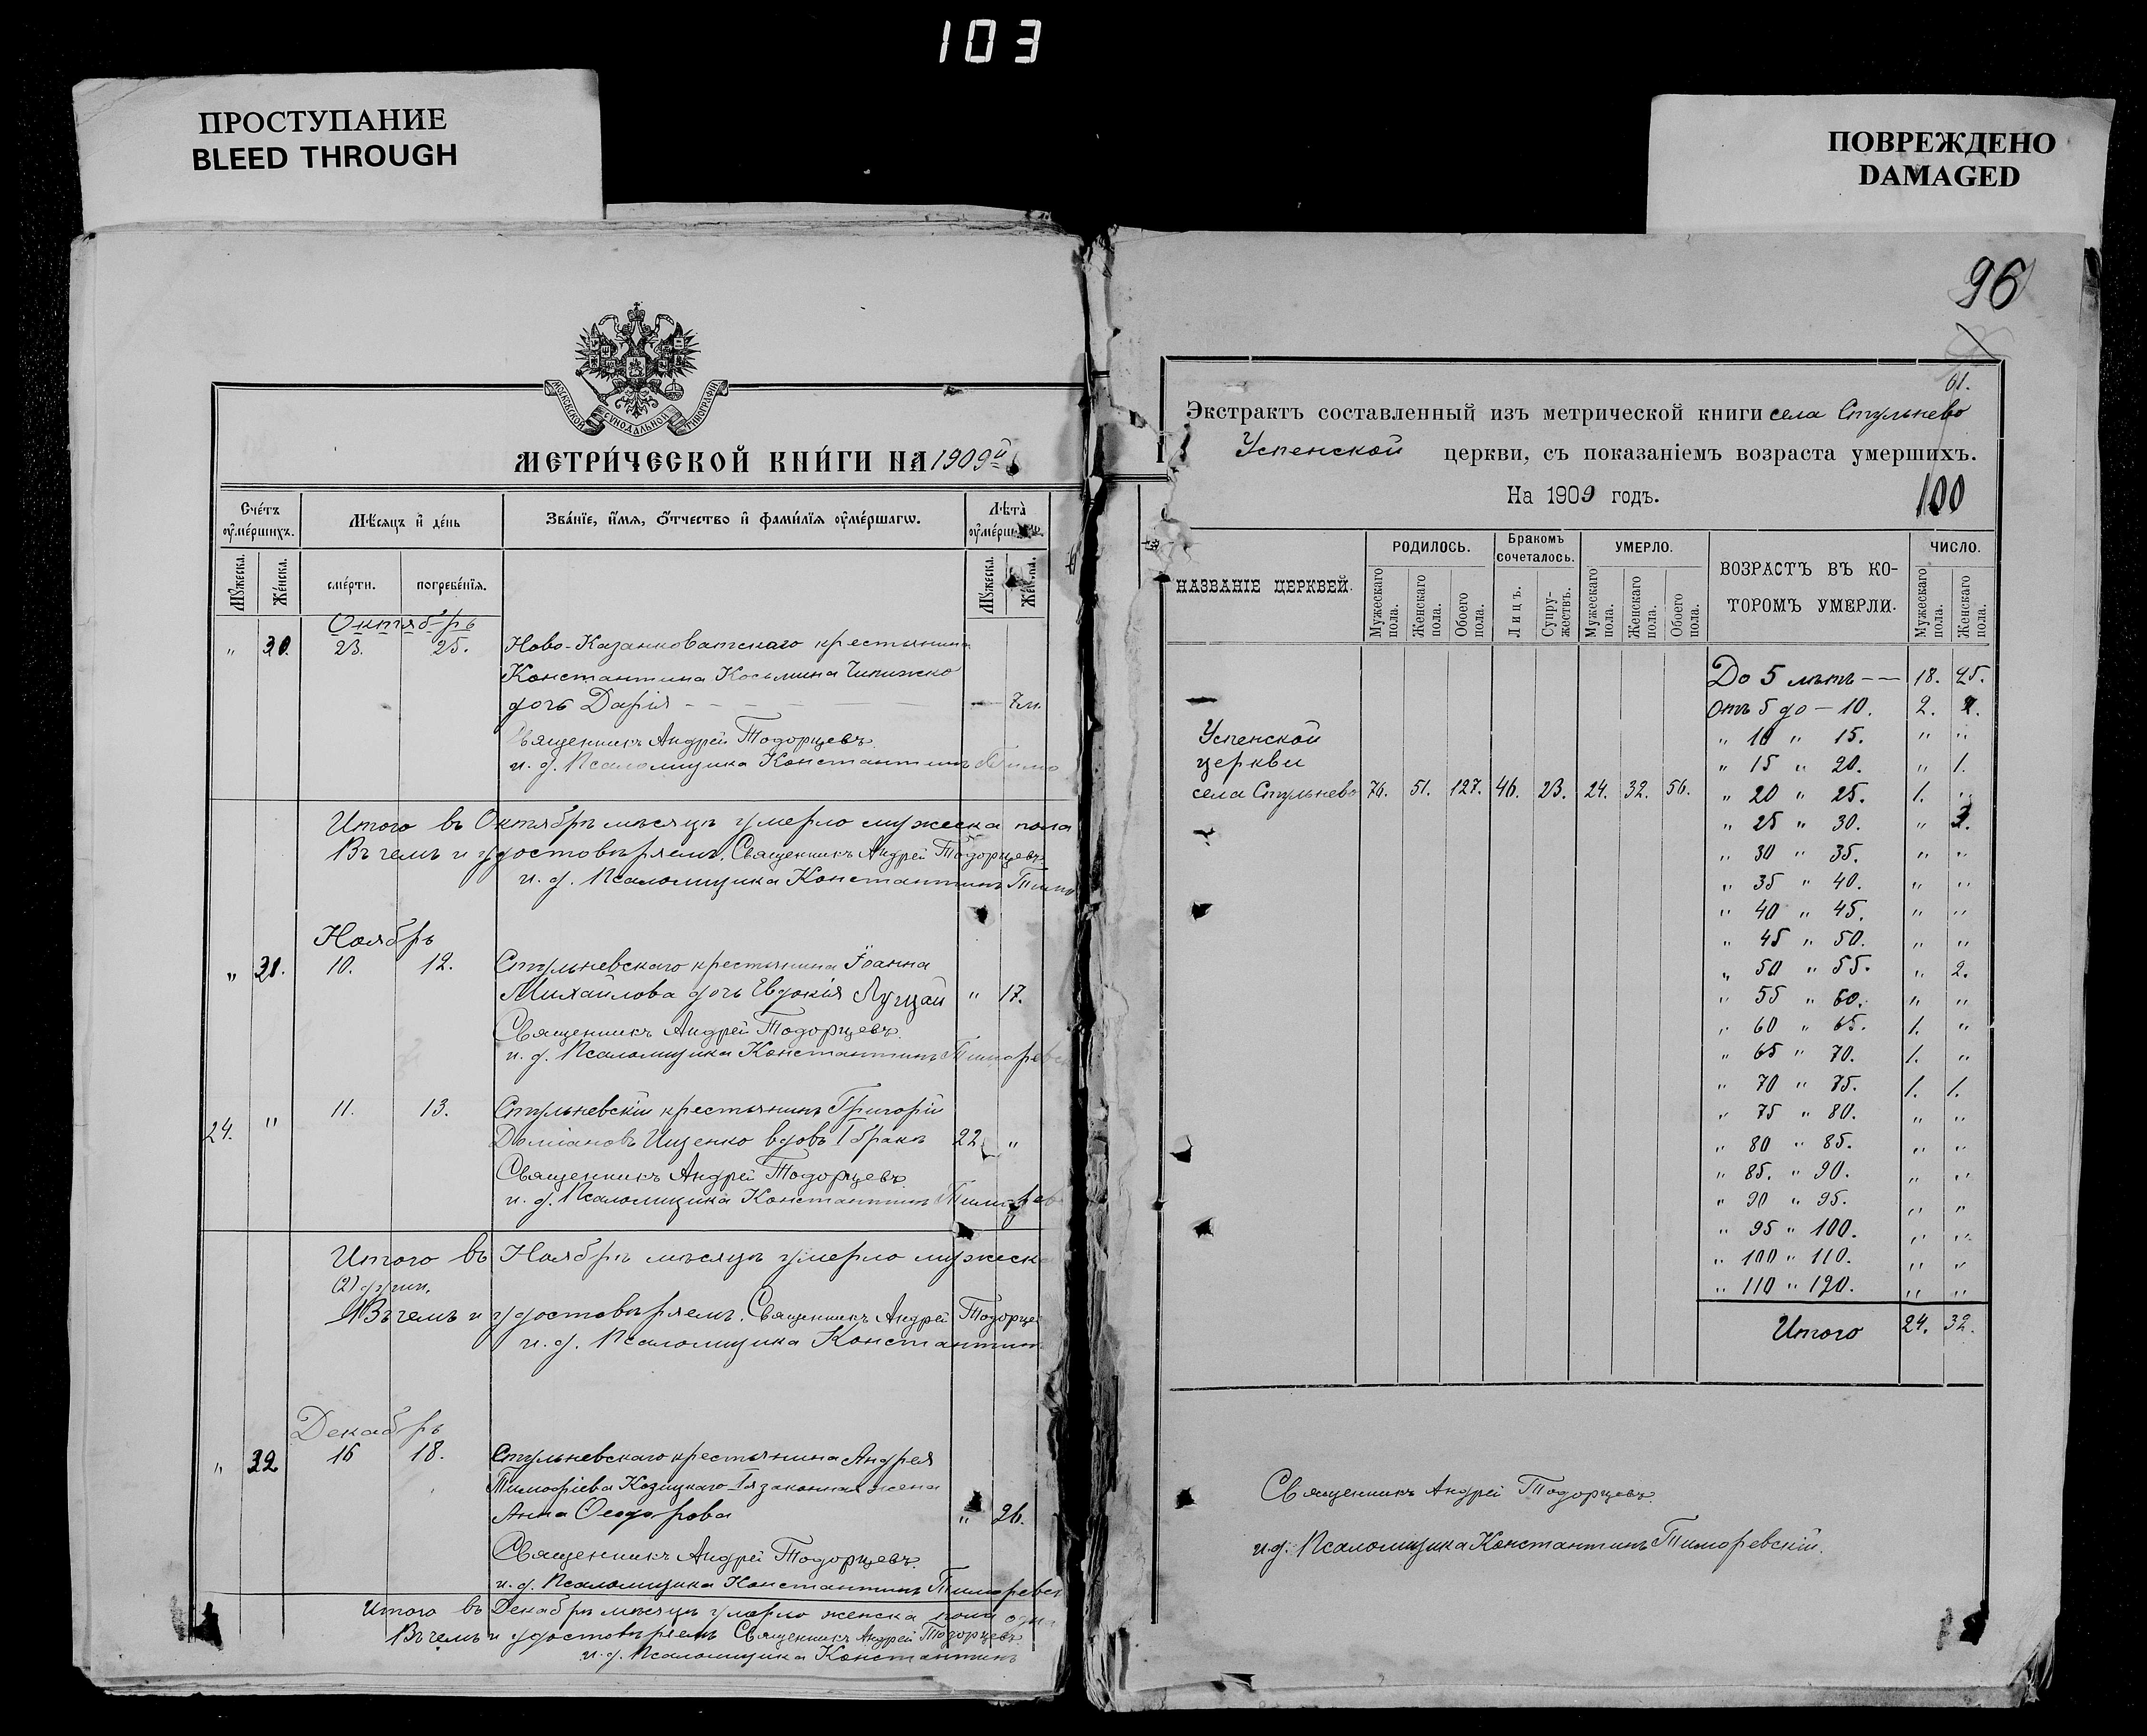 103
ПРОСТУПАНИЕ
BLEED THROUGH
ПОВРЕЖДЕНО
DAMAGED
МОСКОВСКОЙ СУНОДАЛЬНОЙ ТИПОГРАФІИ
МЕТРИ́ЧЕСКОЙ КНИ́ГИ НА 1909й
Сче́тъ ᲂу҆ме́ршихъ.
Мѣ́сяцъ и҆ де́нь
Зва́нїе, и҆́мя, ѻ҆́тчество и҆ фами́лїя ᲂу҆ме́ршагѡ.
Лѣта̀ ᲂу҆ме́рш
Мꙋ́жеска. Же́нска. сме́рти. погребе́нїя. Мꙋ́жеска.
Октябрь
" 30. 23. 25. Ново-Казанковатскаго крестьянина
Константина Косьмина Чипижко
дочь Дарія - - - - - — 7 м.
Священникъ Андрей Тодорцевъ.
и. д. Псаломщика Константинъ Тимо
Итого въ Октябрѣ мѣсяцѣ умерло мужеска пола
Въ чемъ и удостовѣряемъ. Священникъ Андрей Тодорцевъ.
и. д. Псаломщика Константинъ Тимо
Ноябрь
" 31. 10. 12. Стульневскаго крестьянина Іоанна
Михайлова дочь Евдокія Луццай " 17.
Священникъ Андрей Тодорцевъ.
и. д. Псаломщика Константинъ Тиморевск
24. " 11. 13. Стульневскій крестьянинъ Григорій
Доміановъ Ищенко вдовъ I брака 22 "
Священникъ Андрей Тодорцевъ.
и. д. Псаломщика Константинъ Тиморев
Итого въ Ноябрѣ мѣсяцѣ умерло мужеск
Въ чемъ и удостовѣряемъ. Священникъ Андрей Тодорце
и. д. Псаломщика Константинъ
Декабрь
" 32 16 18. Стульневскаго крестьянина Андрея
Тимофіева Козицкаго I-я законная жена
Анна Ѳеодорова " 26.
Священникъ Андрей Тодорцевъ.
и. д. Псаломщика Константинъ Тиморевск
Итого въ Декабрѣ мѣсяцѣ умерло женска пола одн
Въ чемъ и удостовѣряемъ Священникъ Андрей Тодорцевъ
и. д. Псаломщика Константинъ
96
61.
Экстрактъ составленный изъ метрической книги села Стульнево
Успенской церкви, съ показаніемъ возраста умершихъ.
На 1909 годъ.
100
НАЗВАНІЕ ЦЕРКВЕЙ.
РОДИЛОСЬ. Бракомъ сочеталось. УМЕРЛО. ВОЗРАСТЪ ВЪ КО-ТОРОМЪ УМЕРЛИ. ЧИСЛО.
Мужескаго пола. Женскаго пола. Обоего пола. Лицъ. Супру-жествъ. Мужескаго пола. Женскаго пола. Обоего пола. Мужескаго пола. Женскаго пола.
Успенской
церкви
села Стульнево 76. 51. 127. 46. 23. 24. 32. 56.
До 5 лѣтъ — — 18. 25.
Отъ 5 до — 10. 2.
" 10 " 15. " "
" 15 " 20. " 1.
" 20 " 25. 1. "
" 25 " 30. "
" 30 " 35. " "
" 35 " 40. " "
" 40 " 45. " "
" 45 " 50. " "
" 50 " 55. " 2.
" 55 " 60. " "
" 60 " 65. 1. "
" 65 " 70. 1. "
" 70 " 75. 1. 1.
" 75 " 80. " "
" 80 " 85. " "
" 85. " 90. " "
" 90 " 95. " "
" 95 " 100. " "
" 100 " 110. " "
" 110 " 120. " "
Итого 24. 32.
Священникъ Андрей Тодорцевъ.
и.д. Псаломщика Константинъ Тиморевскій.